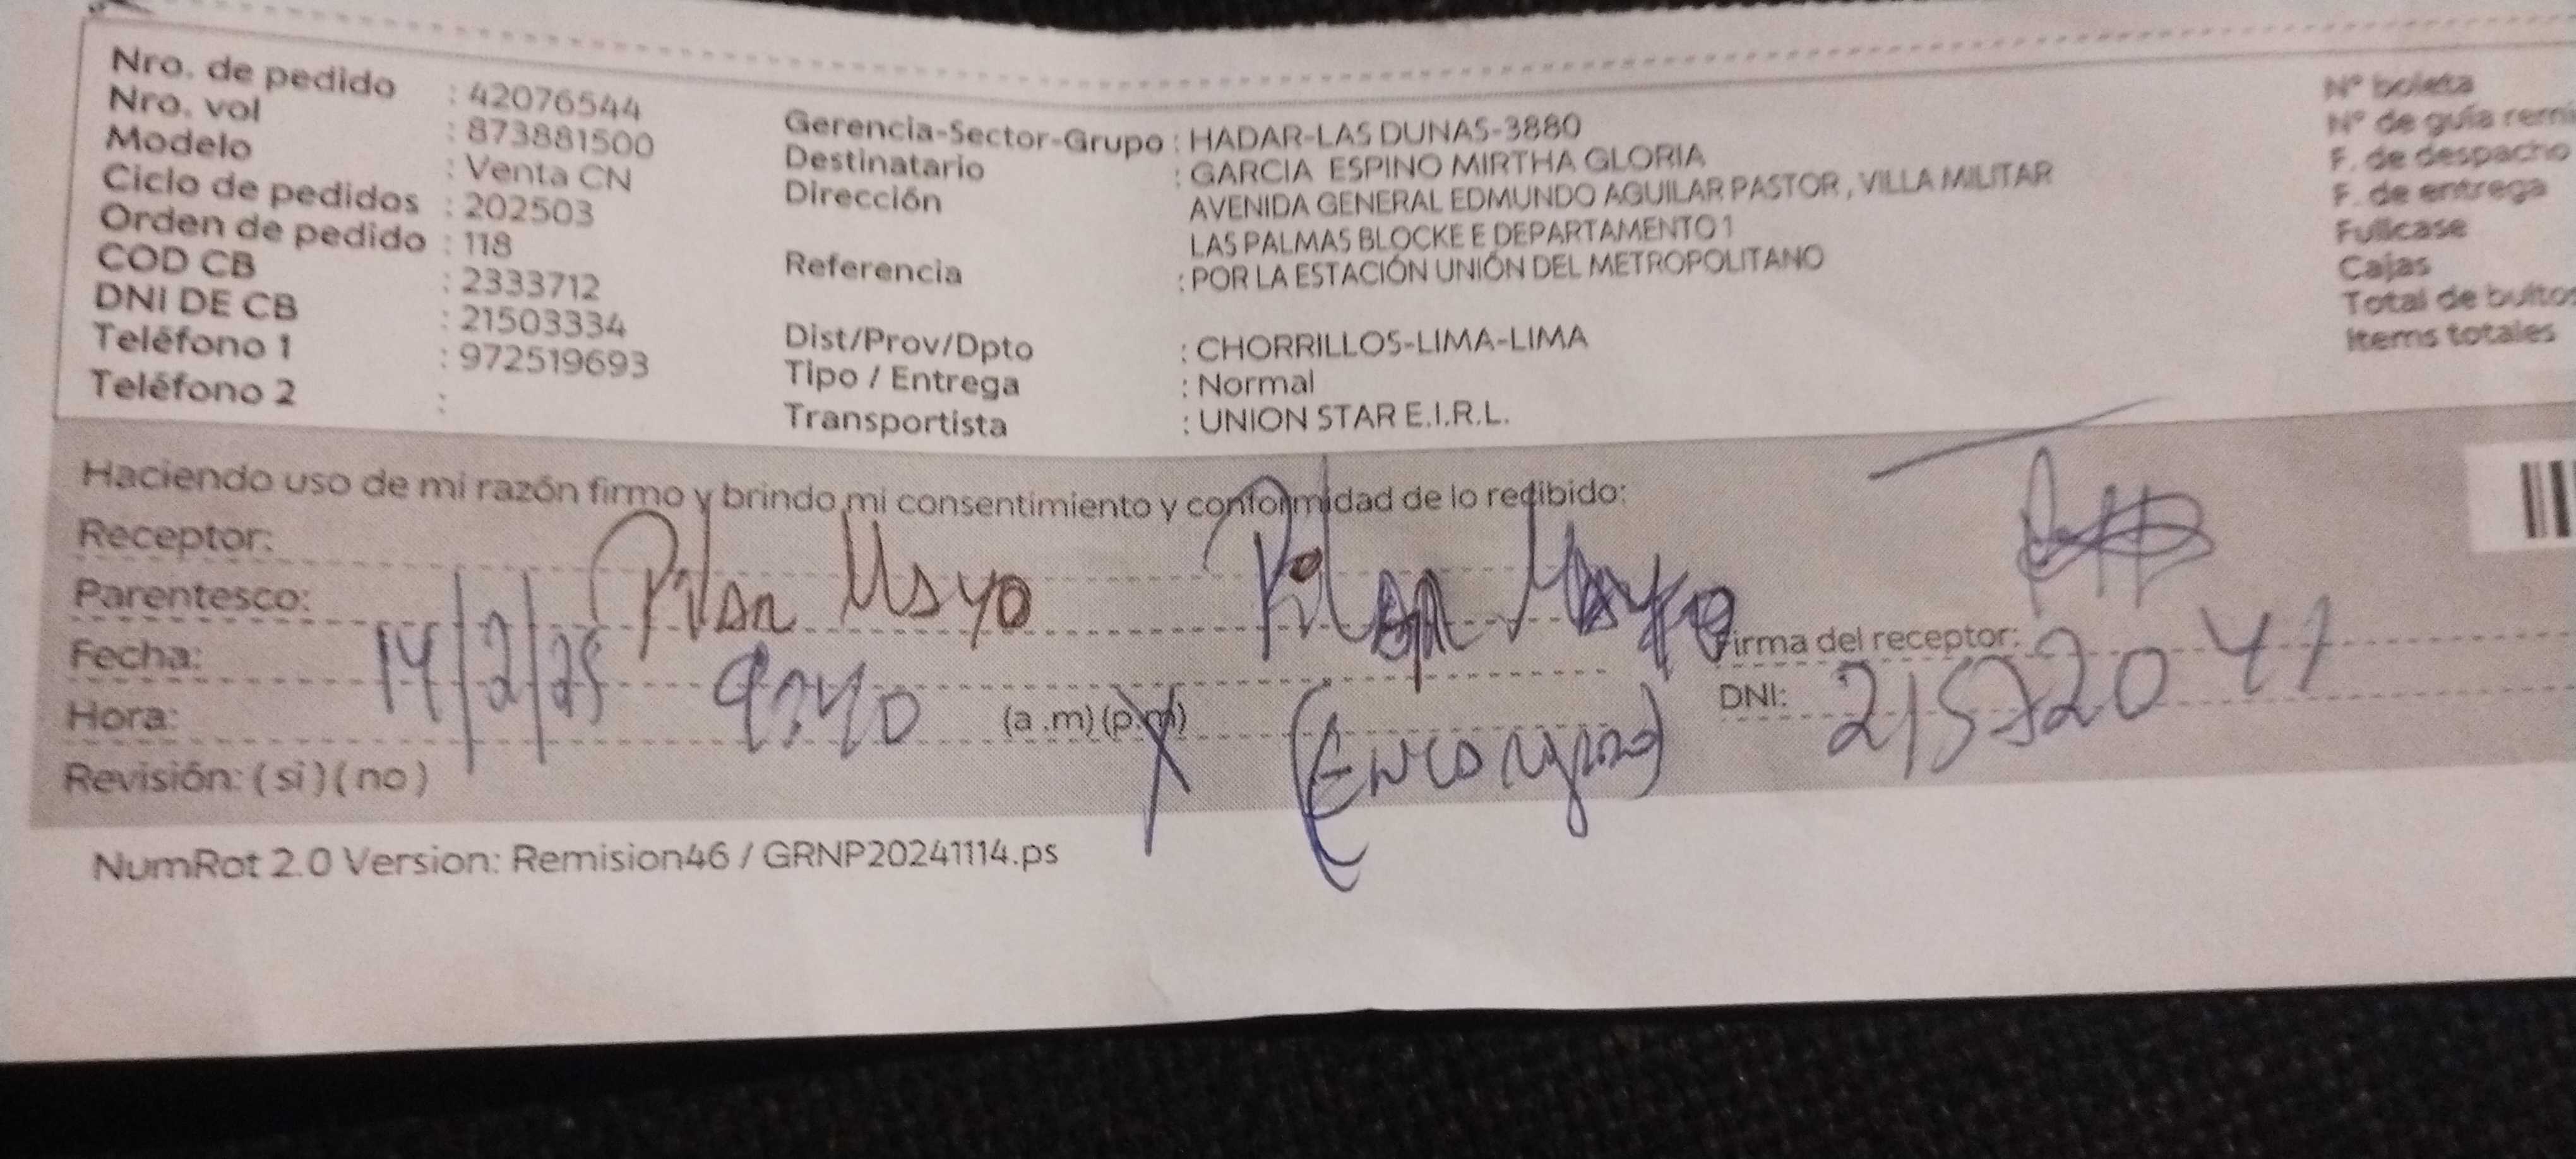 Nro. de pedido : 42076544
Nro. vol : 873881500
Modelo : Venta CN
Ciclo de pedidos : 202503
Orden de pedido : 118
COD CB : 2333712
DNI DE CB : 21503334
Teléfono 1 : 972519693
Teléfono 2 :
Gerencia-Sector-Grupo : HADAR-LAS DUNAS-3880
Destinatario : GARCIA ESPINO MIRTHA GLORIA
Dirección AVENIDA GENERAL EDMUNDO AGUILAR PASTOR , VILLA MILITAR
LAS PALMAS BLOCKE E DEPARTAMENTO 1
Referencia : POR LA ESTACIÓN UNIÓN DEL METROPOLITANO
Dist/Prov/Dpto : CHORRILLOS-LIMA-LIMA
Tipo / Entrega : Normal
Transportista : UNION STAR E.I.R.L.
N° boleta
N° de guía remi
F. de despacho
F. de entrega
Fullcase
Cajas
Total de bultos
Items totales
Haciendo uso de mi razón firmo y brindo mi consentimiento y conformidad de lo recibido:
Receptor:
Parentesco: Pilar Mayo Pilar Mayo
Fecha: 14/2/25 Firma del receptor:
Hora: 9:40 (a .m) (p.m) DNI: 21572041
Revisión: ( si ) ( no )
NumRot 2.0 Version: Remision46 / GRNP20241114.ps